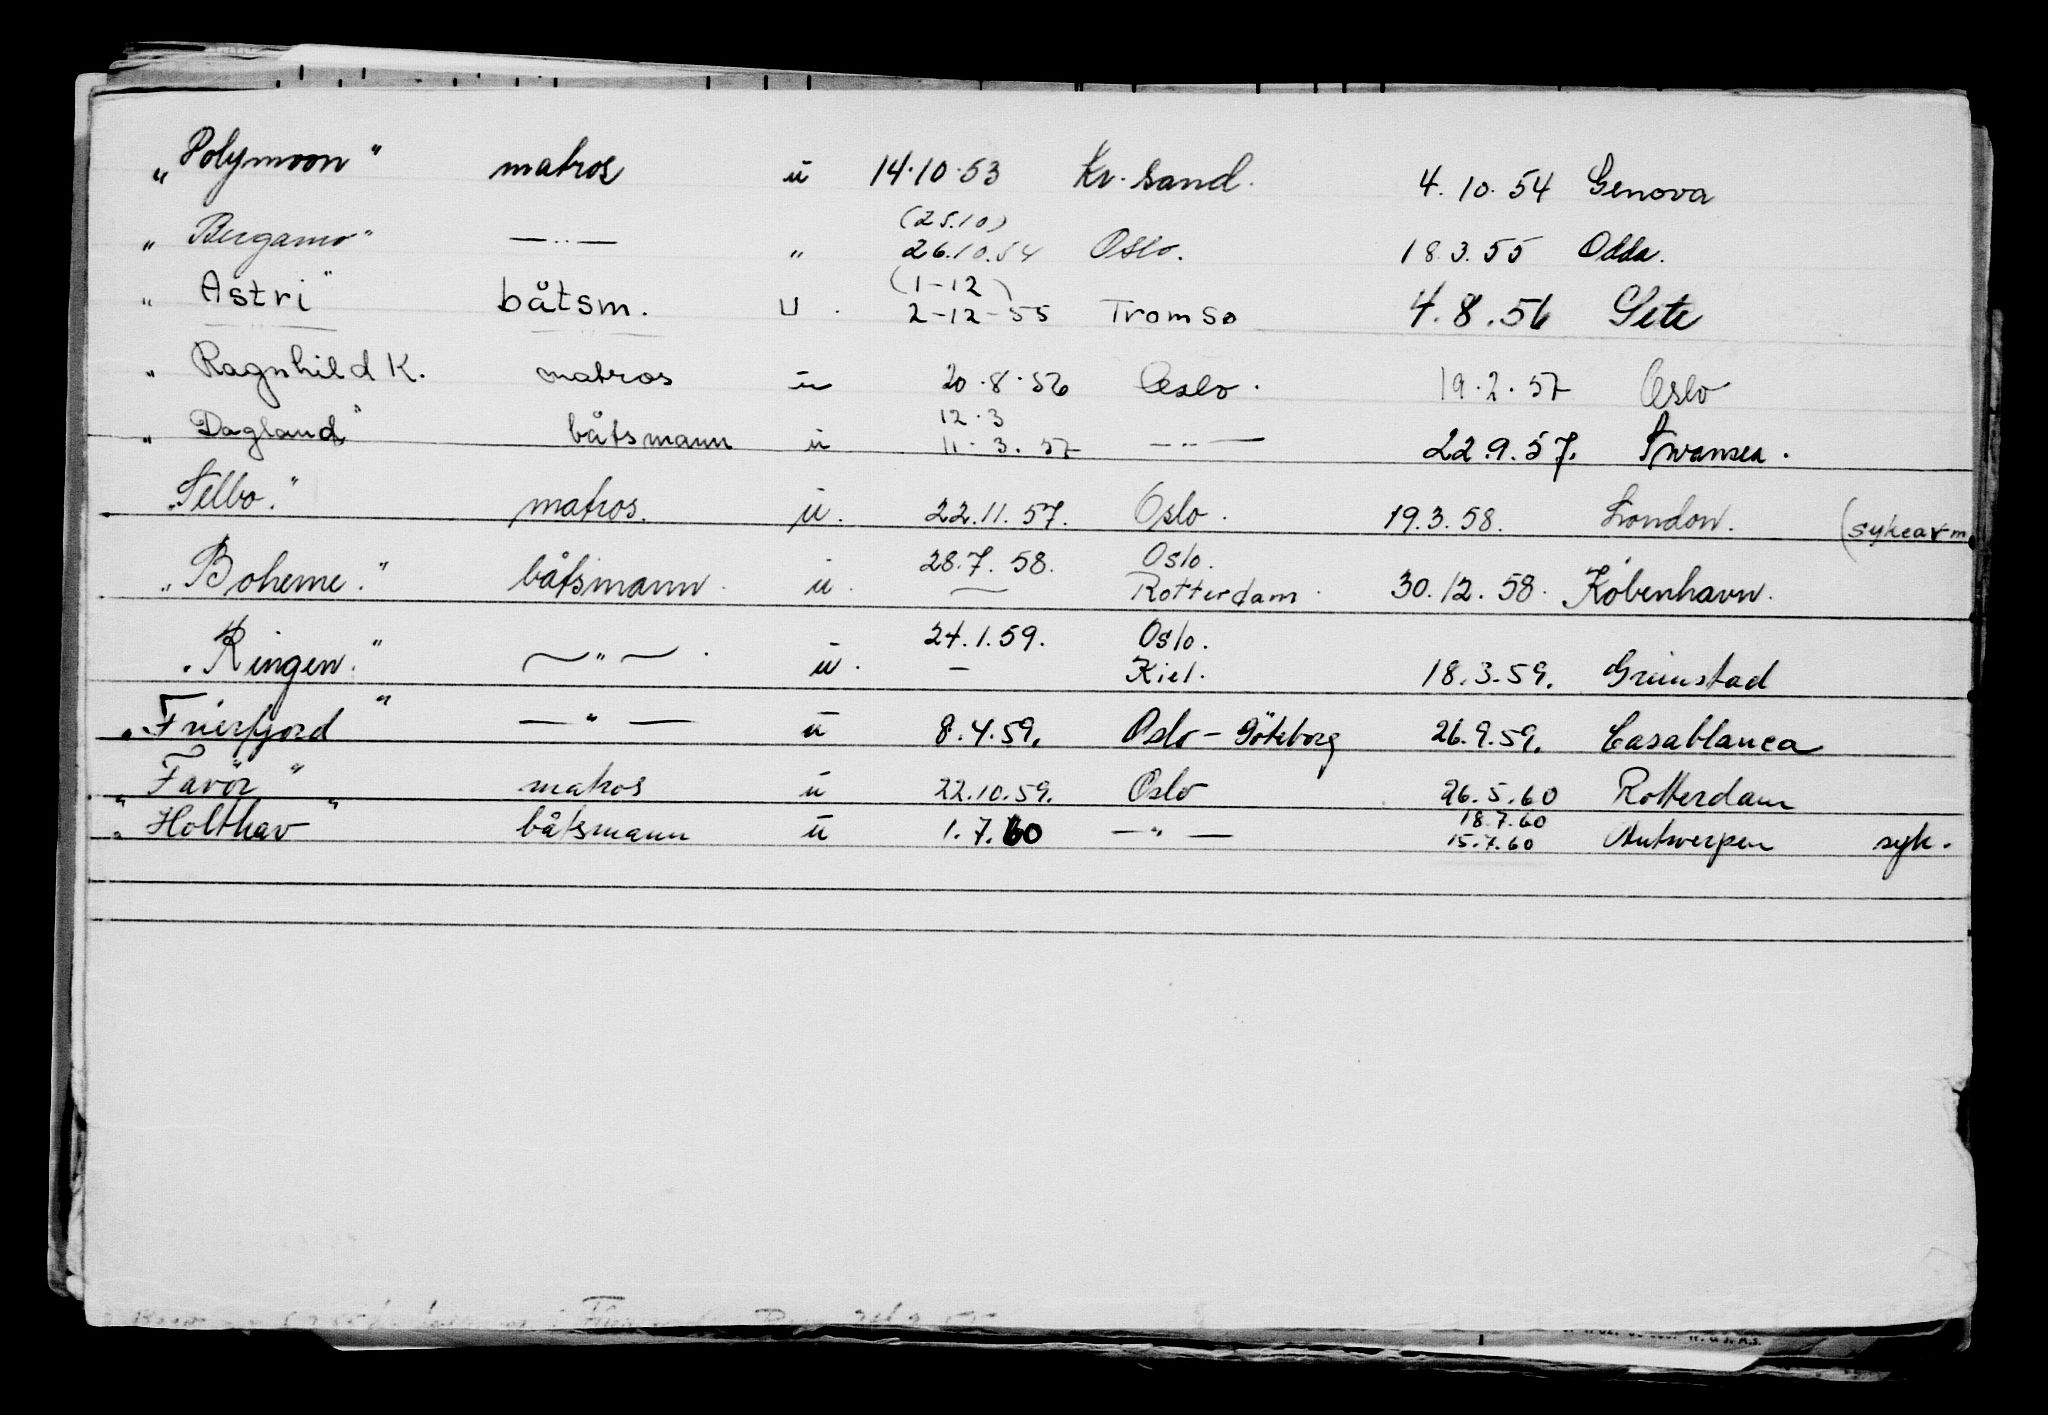 „Polymoon" matros ū 14.10.53 Kr. Sand. 4.10.54 Genova
(25.10)
„Bergamo" —..— „ 26.10.54 Oslo. 18.3.55 Odda.
(1-12)
„Astri" båtsm. U. 2-12-55 Tromsø 4.8.56 Sete
„Ragnhild K. matros ū 20.8.56 Oslo. 19.2.57 Oslo
12.3
„Dagland" båtsmann ū 11.3.57 —..— 22.9.57. Swansea.
„Selbo." matros. ū. 22.11.57. Oslo. 19.3.58. London. (sykearm
28.7.58. Oslo.
„Boheme." båtsmann. ū. — Rotterdam. 30.12.58. København.
24.1.59. Oslo.
„Ringen." —"—. ū. — Kiel. 18.3.59. Grimstad
„Frierfjord" —"— ū 8.4.59. Oslo – Göteborg 26.9.59. Casablanca
„Favör" matros ū 22.10.59. Oslo 26.5.60 Rotterdam
18.7.60
„Holthav" båtsmann ū 1.7.60 —"— 15.7.60 Antwerpen syk.